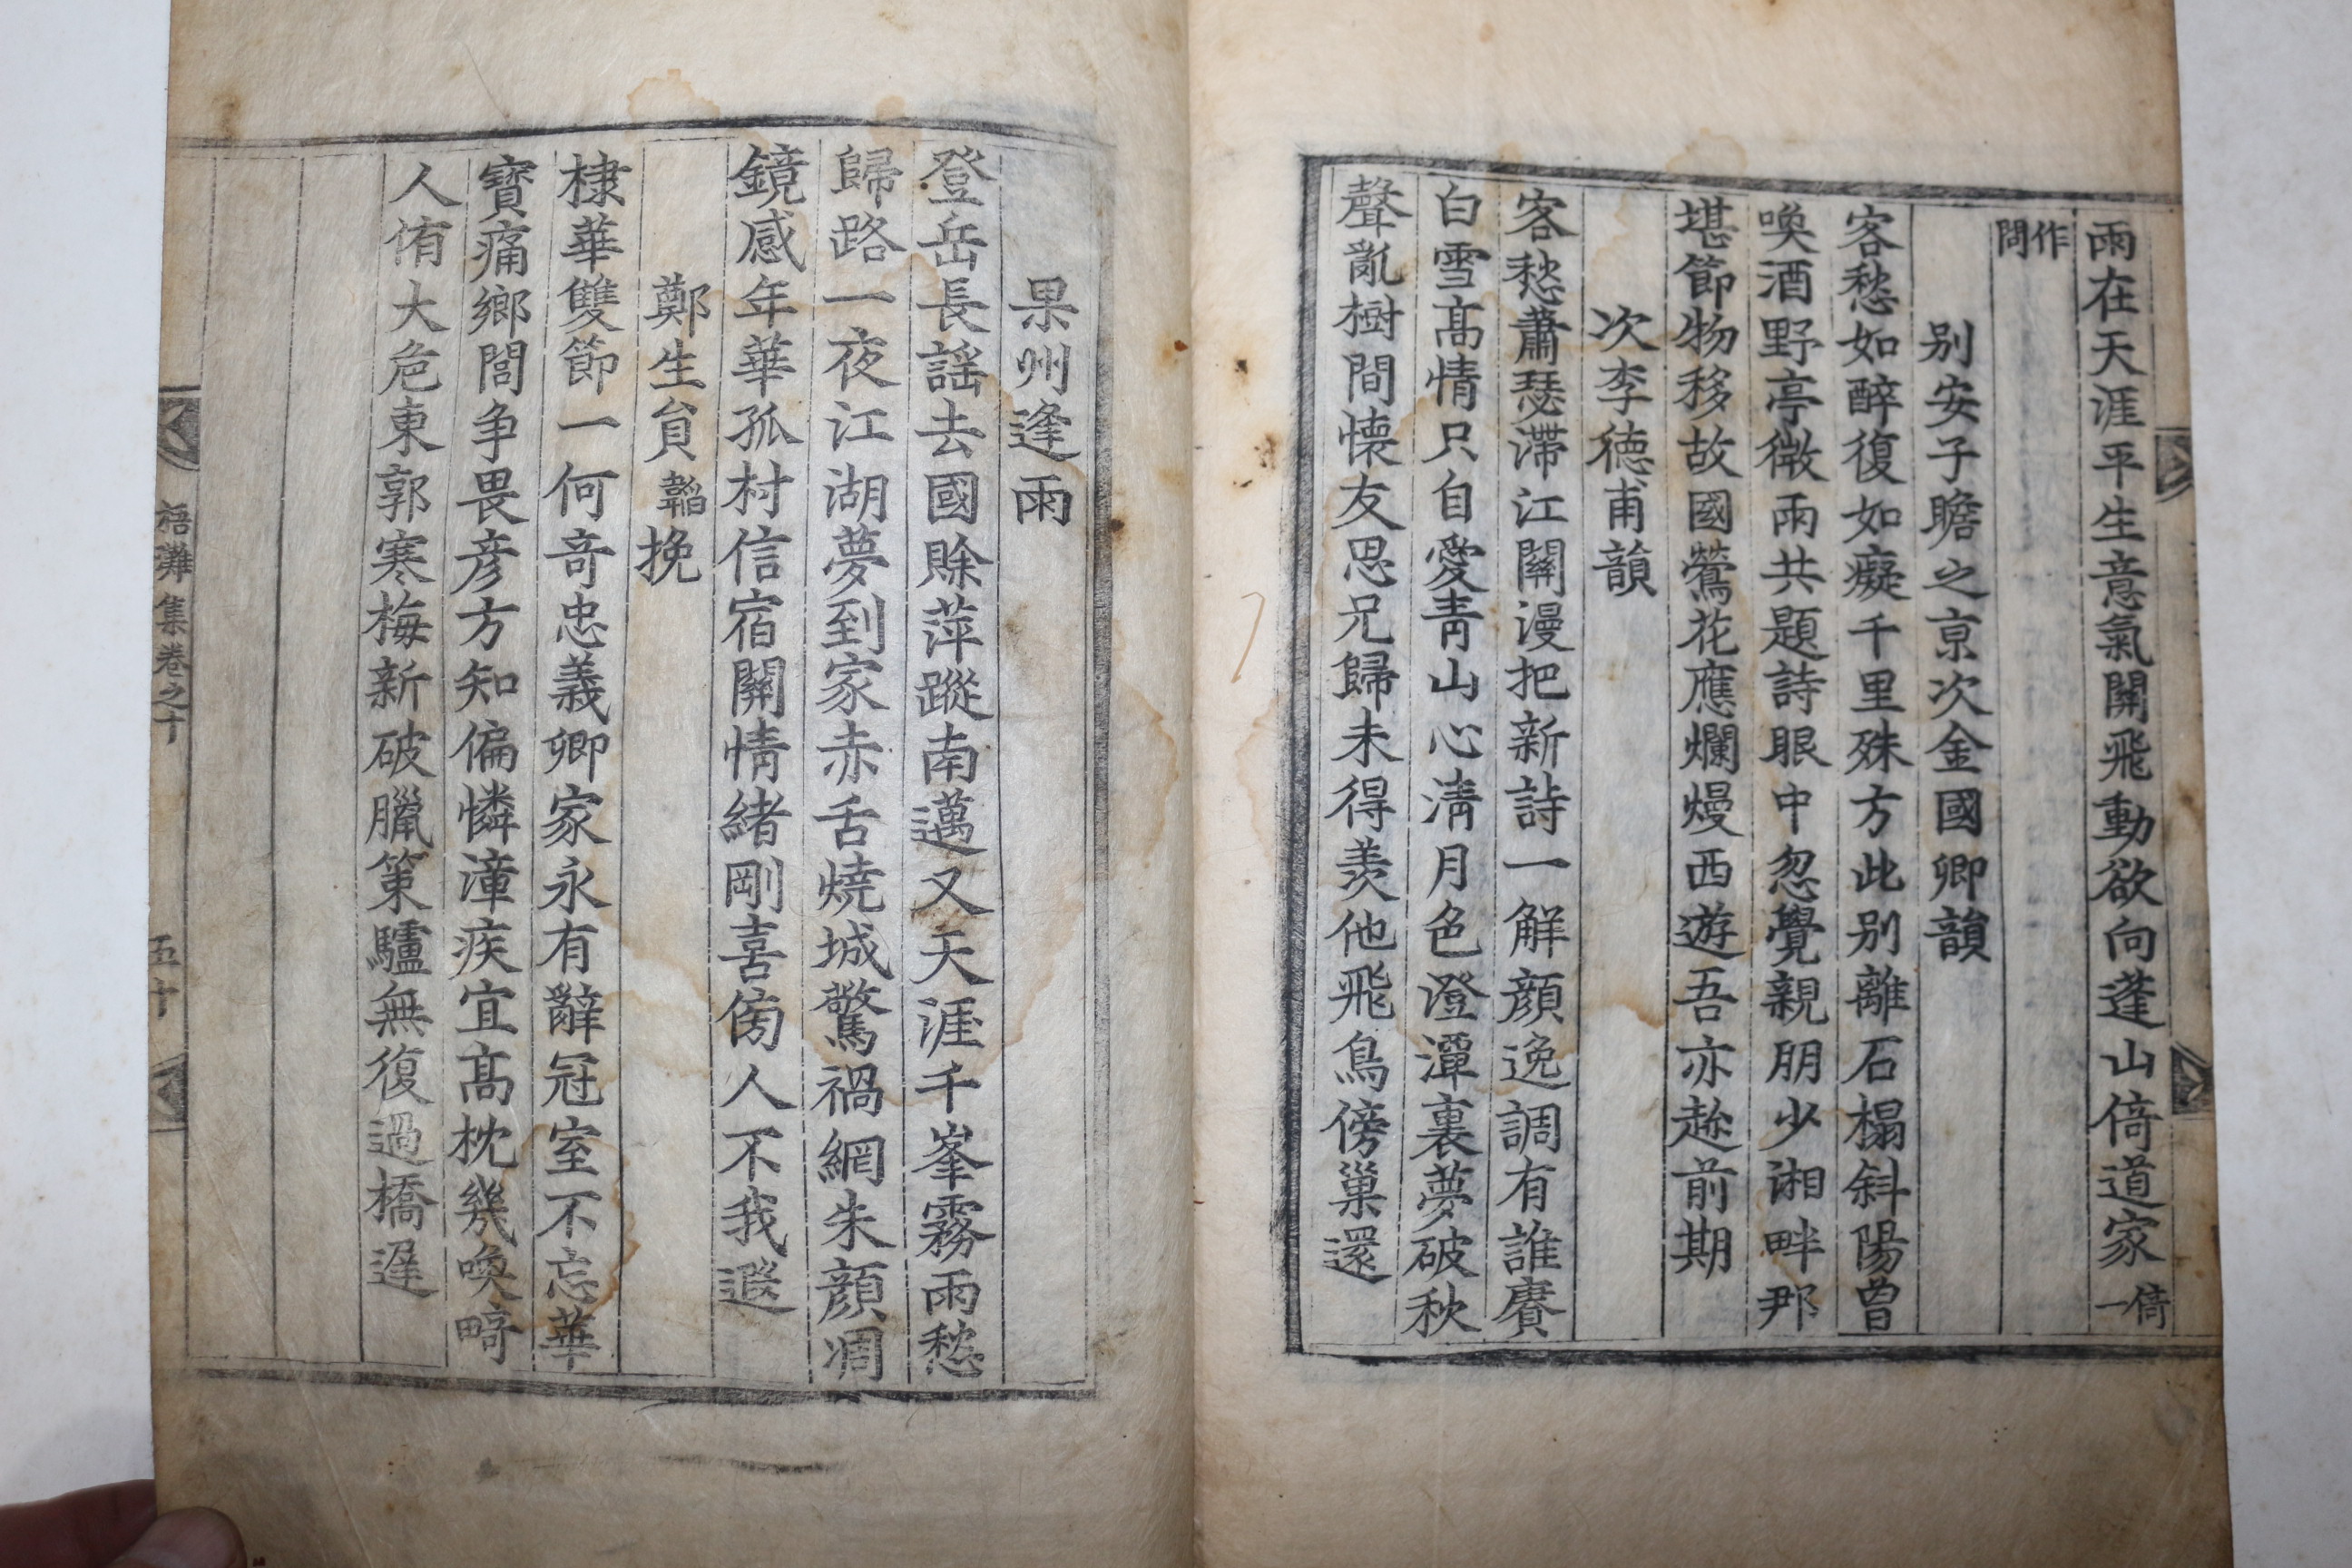 雨在天涯平生意氣關飛動欲向蓬山倚道家倚一
作問
別安子瞻之京次金國卿韻
客愁如醉復如癡千里殊方此別離石榻斜陽曾
喚酒野亭微雨共題詩眼中忽覺親朋少湘畔那
堪節物移故國鶯花應爛熳西遊吾亦趂前期
次李德甫韻
客愁蕭瑟滯江關漫把新詩一解顏逸調有誰賡
白雪高情只自愛靑山心淸月色澄潭裏夢破秋
聲亂樹間懷友思兄歸未得羨他飛鳥傍巢還
果州逢雨
登岳長謠去國賖萍蹤南邁又天涯千峯霧雨愁
歸路一夜江湖夢到家赤舌燒城驚禍網朱顏凋
鏡感年華孤村信宿關情緖剛喜傍人不我遐
鄭生貟韜挽
棣華雙節一何奇忠義卿家永有辭冠室不忘華
寶痛鄕閭争畏彦方知偏憐漳疾宜高枕幾喚畸
人侑大危東郭寒梅新破臘策驢無復過橋遲
梧灘集卷之十
五十